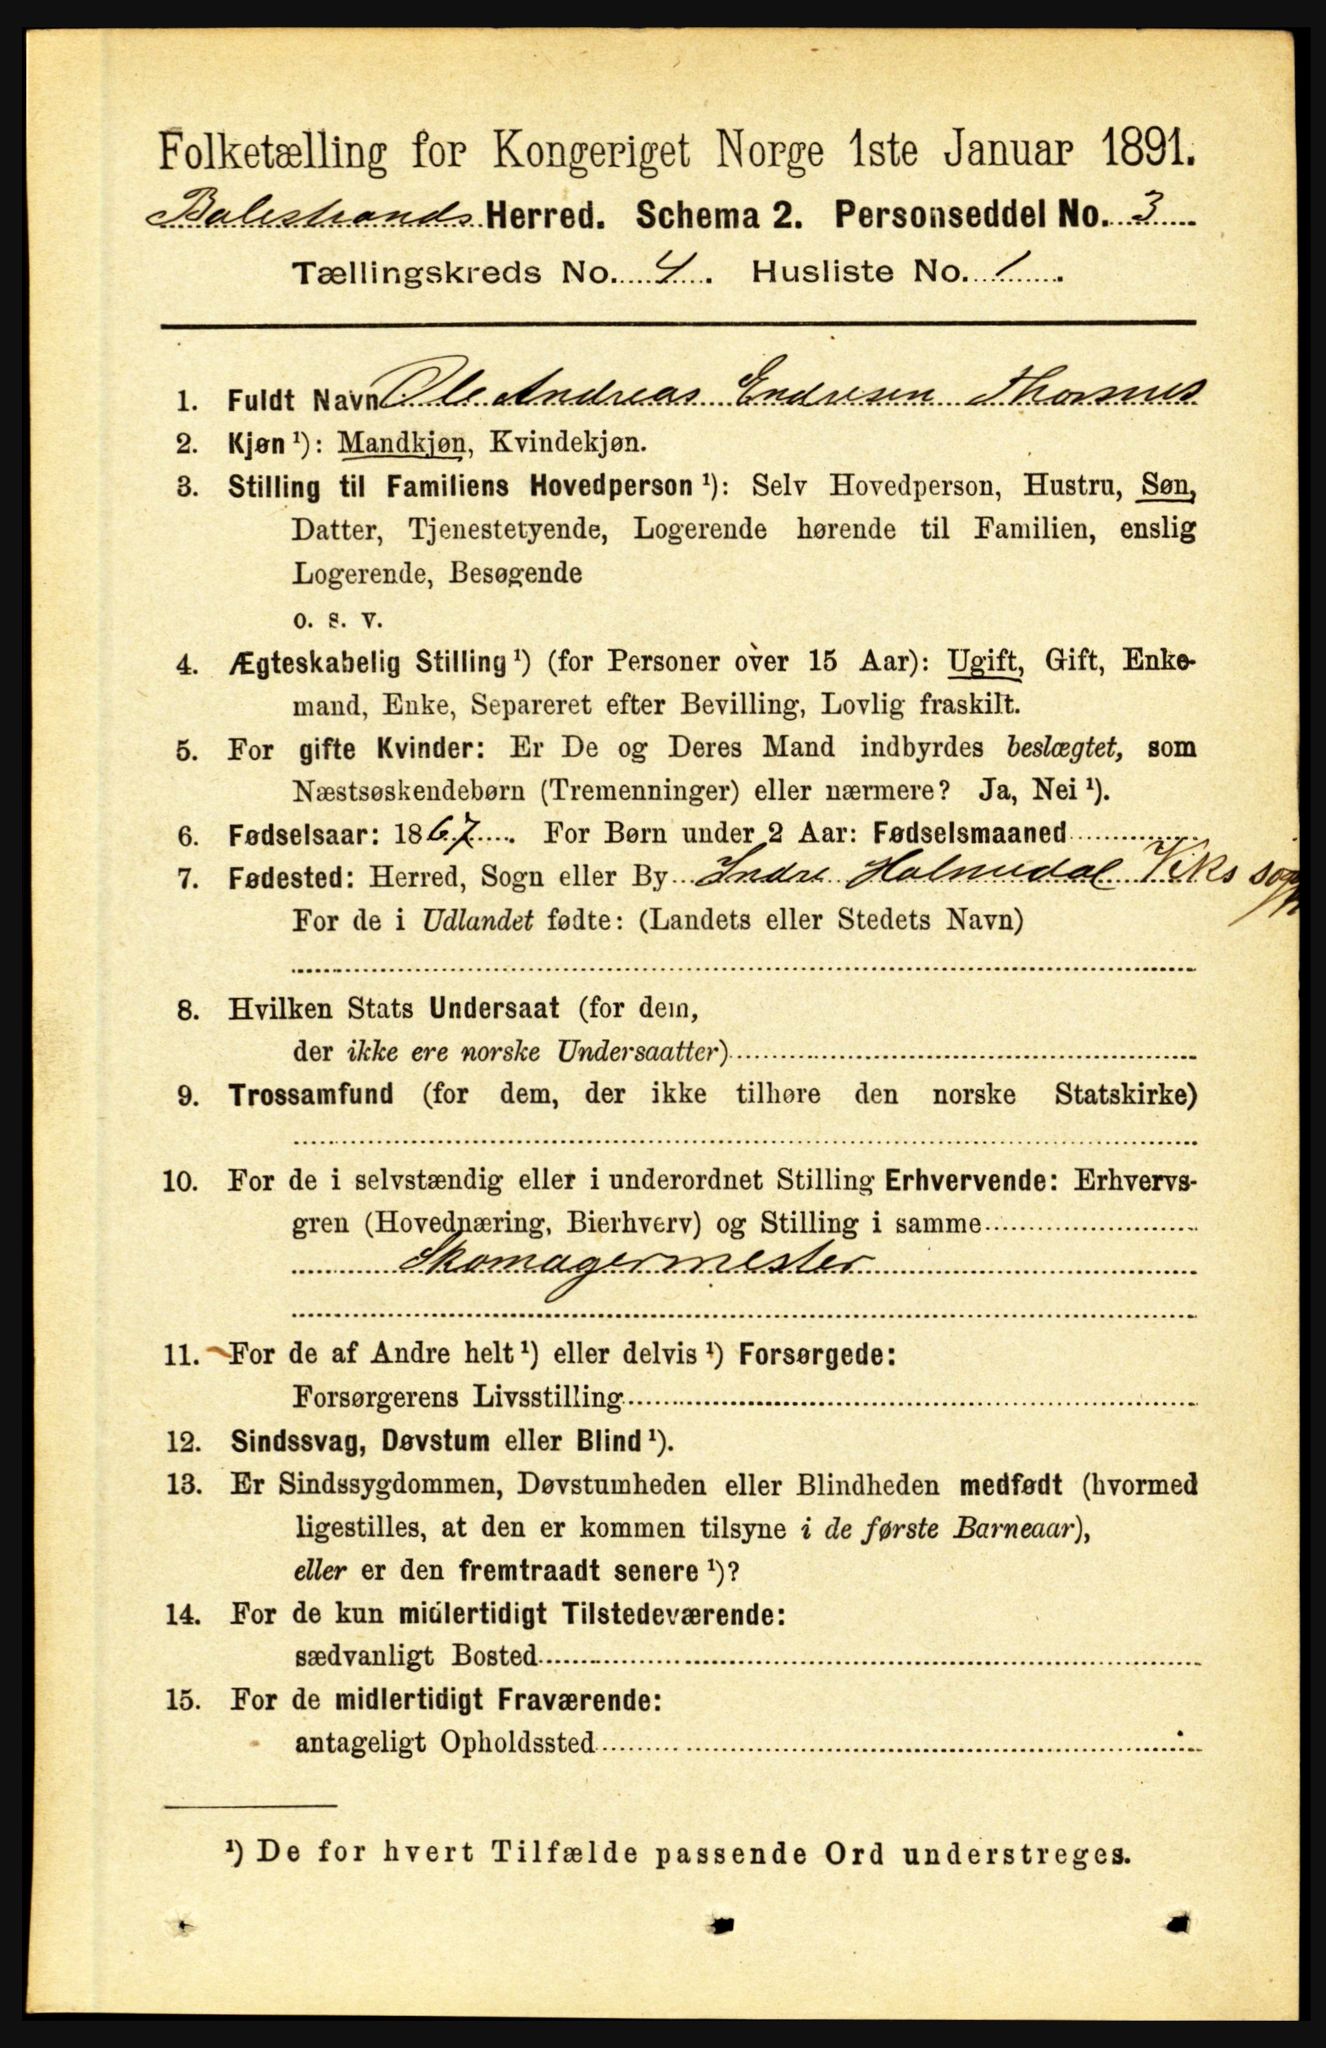 Folketælling for Kongeriget Norge 1ste Januar 1891.
Balestrands Herred. Schema 2. Personseddel No. 3
Tællingskreds No. 4. Husliste No. 1.
1. Fuldt Navn Ole Andreas Endresen Thorsnes
2. Kjøn¹): Mandkjøn, Kvindekjøn.
3. Stilling til Familiens Hovedperson¹): Selv Hovedperson, Hustru, Søn,
Datter, Tjenestetyende, Logerende hørende til Familien, enslig
Logerende, Besøgende
o. s. v.
4. Ægteskabelig Stilling¹) (for Personer over 15 Aar): Ugift, Gift, Enke-
mand, Enke, Separeret efter Bevilling, Lovlig fraskilt.
5. For gifte Kvinder: Er De og Deres Mand indbyrdes beslægtet, som
Næstsøskendebørn (Tremenninger) eller nærmere? Ja, Nei¹).
6. Fødselsaar: 1867. For Børn under 2 Aar: Fødselsmaaned
7. Fødested: Herred, Sogn eller By Indre Holmedal Viks sogn
For de i Udlandet fødte: (Landets eller Stedets Navn)
8. Hvilken Stats Undersaat (for dem,
der ikke ere norske Undersaatter)
9. Trossamfund (for dem, der ikke tilhøre den norske Statskirke)
10. For de i selvstændig eller i underordnet Stilling Erhvervende: Erhvervs-
gren (Hovednæring, Bierhverv) og Stilling i samme
Skomagermester
11. For de af Andre helt¹) eller delvis¹) Forsørgede:
Forsørgerens Livsstilling
12. Sindssvag, Døvstum eller Blind¹).
13. Er Sindssygdommen, Døvstumheden eller Blindheden medfødt (hvormed
ligestilles, at den er kommen tilsyne i de første Barneaar),
eller er den fremtraadt senere¹)?
14. For de kun midlertidigt Tilstedeværende:
sædvanligt Bosted
15. For de midlertidigt Fraværende:
antageligt Opholdssted
¹) De for hvert Tilfælde passende Ord understreges.